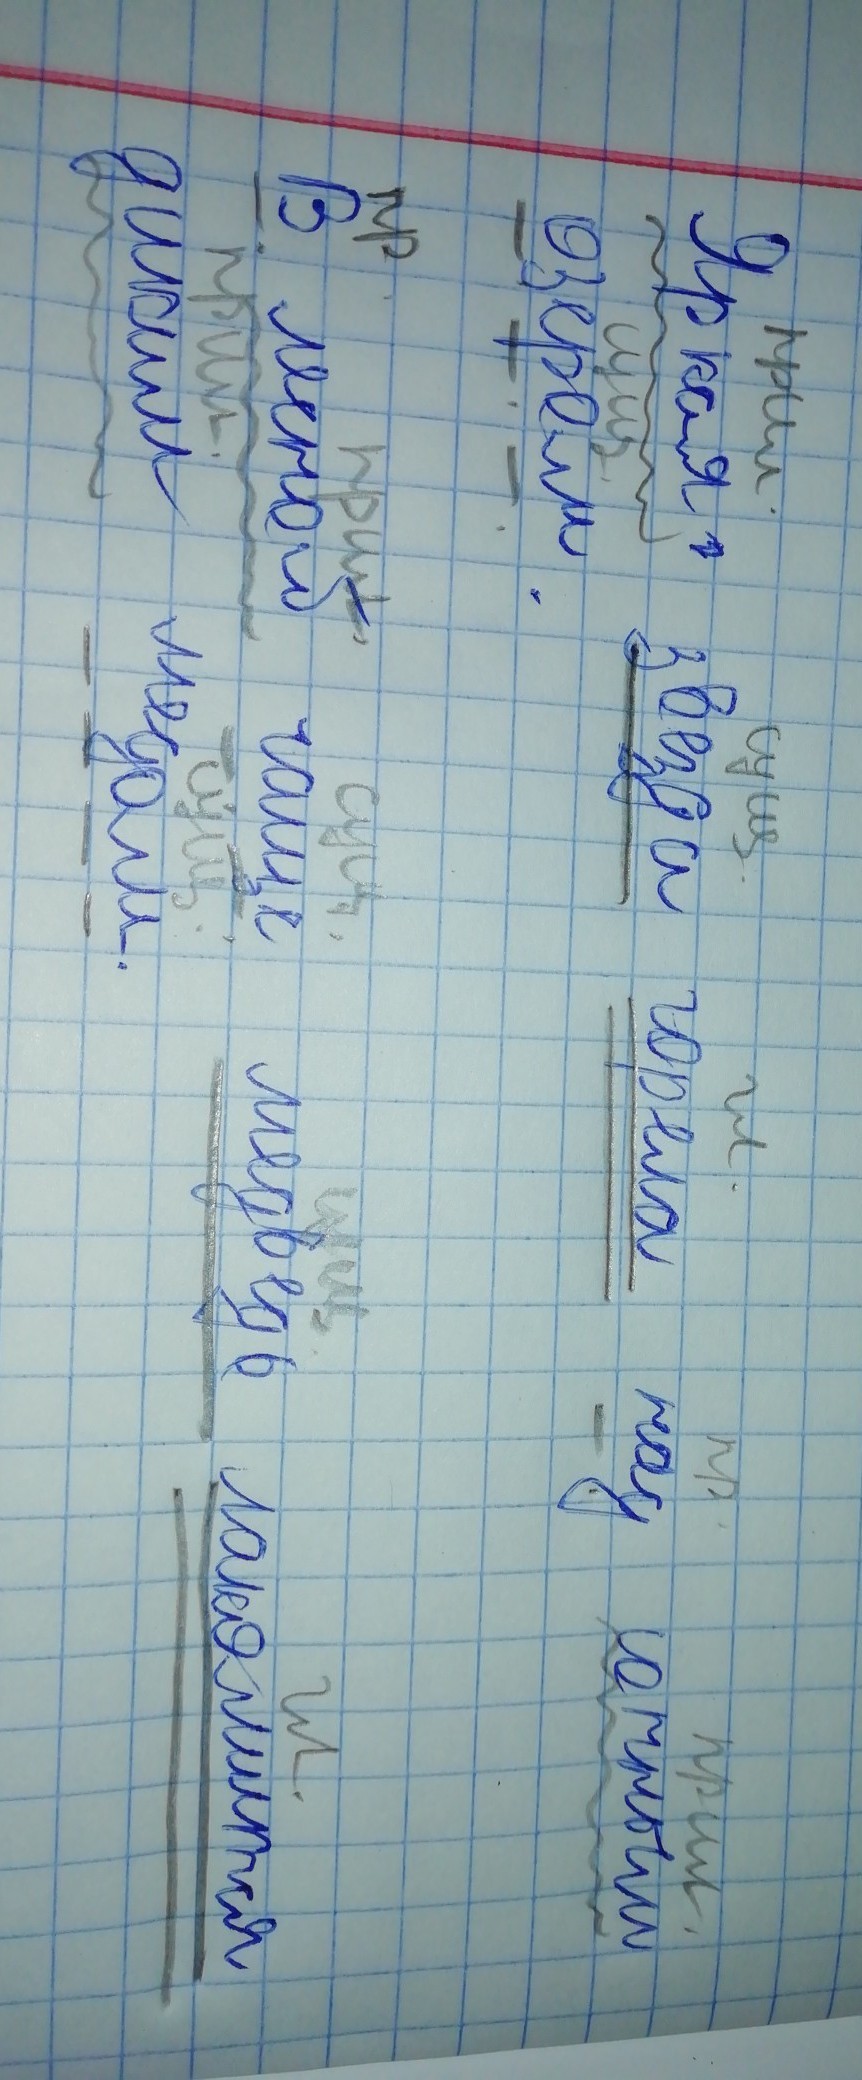 прил. сущ. гл. пр. прил.
Яркая звезда горела над
сущ.
озером.
пр прил. сущ. сущ. гл.
В лесной чаще медведь лакомится
прил. сущ.
диким медом.